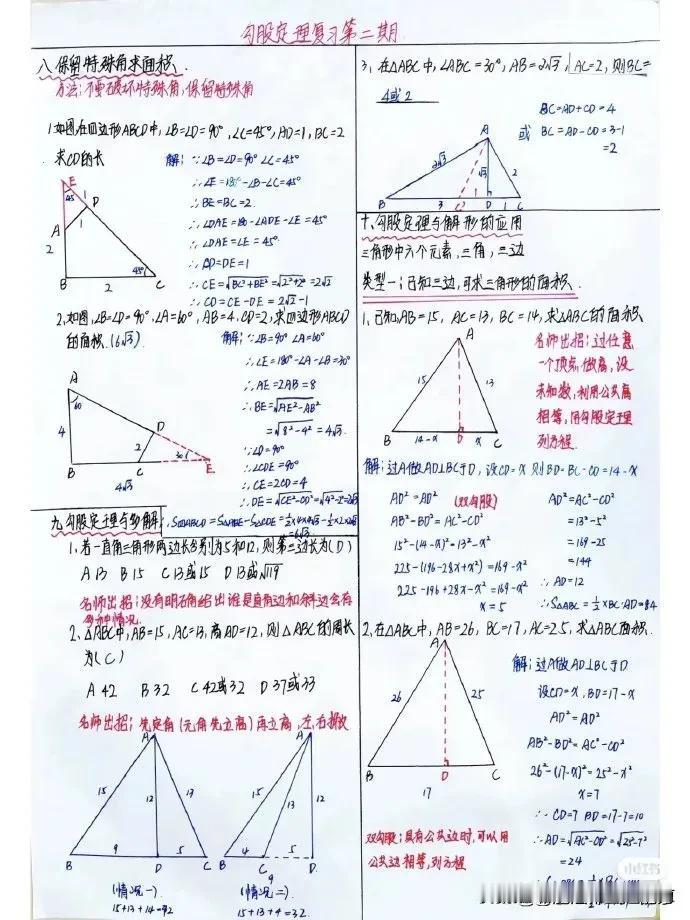 勾股定理复习第二期
八、保留特殊角求面积.
方法:不要破坏特殊角,保留特殊角
1.如图,在四边形ABCD中,∠B=∠D=90°,∠C=45°,AD=1,BC=2
求CD的长
解:∵∠B=∠D=90° ∠C=45°
∴∠E=180°-∠B-∠C=45°
∴BE=BC=2
∴∠DAE=180-∠ADE-∠E=45°
∴∠DAE=∠E=45°
∴AD=DE=1
∴CE=√BC²+BE²=√2²+2²=2√2
∴CD=CE-DE=2√2-1
E
45
1
D
A
1
2
45°
B
2
C
2.如图,∠B=∠D=90°,∠A=60°,AB=4,CD=2,求四边形ABCD
的面积.(6√3)
解:∵∠B=90° ∠A=60°
∴∠E=180°-∠A-∠B=30°
∴AE=2AB=8
∴BE=√AE²-AB²
=√8²-4²=4√3
∵∠D=90°
∴∠CDE=90°
∴CE=2CD=4
∴DE=√CE²-CD²=√4²-2²=2√3
∴S四ABCD=S△ABE-S△CDE=½×4×4√3-½×2×2√3
=6√3
A
60
4
D
2
30°
B
C
E
4√3
九、勾股定理与多解
1、若一直角三角形两边长分别为5和12,则第三边长为(D)
A 13 B 15 C 13或15 D 13或√119
名师出招:没有明确给出谁是直角边和斜边会有
多种情况.
2、△ABC中,AB=15,AC=13,高AD=12,则△ABC的周长
为(C)
A 42 B 32 C 42或32 D 37或33
名师出招:先定角(无角先立高)再立高,左,右摆放
A
15
12
13
B
9
D
5
C
(情况一)
15+13+14=42
A
15
13
12
B
4
C
5
D
9
(情况二)
15+13+4=32
3、在△ABC中,∠ABC=30°,AB=2√3,AC=2,则BC=
4或2
BC=AD+CD=4
或 BC=AD-CD=3-1
=2
A
2√3
√3
2
B
3
C'
1
D
1
C
十、勾股定理与解形的应用
三角形中六个元素,三角,三边
类型一:已知三边,可求三角形的面积.
1、已知AB=15,AC=13,BC=14,求△ABC的面积
名师出招:过任意
一个顶点做高,设
未知数,利用公共高
相等,用勾股定理
列方程.
A
15
13
B
14-x
D
x
C
解:过A做AD⊥BC于D,设CD=x 则BD=BC-CD=14-x
AD²=AD² (双勾股)
AB²-BD²=AC²-CD²
15²-(14-x)²=13²-x²
225-(196-28x+x²)=169-x²
225-196+28x-x²=169-x²
x=5
AD²=AC²-CD²
=13²-5²
=169-25
=144
∴AD=12
∴S△ABC=½×BC·AD=84
2、在△ABC中,AB=26,BC=17,AC=25,求△ABC面积.
A
26
25
B
D
C
17
解:过A做AD⊥BC于D
设CD=x,BD=17-x
AD²=AD²
AB²-BD²=AC²-CD²
26²-(17-x)²=25²-x²
x=7
∴CD=7 BD=17-7=10
∴AD=√AC²-CD²=√25²-7²
=24
双勾股:具有公共边时,可以用
公共边相等,列方程
小红书